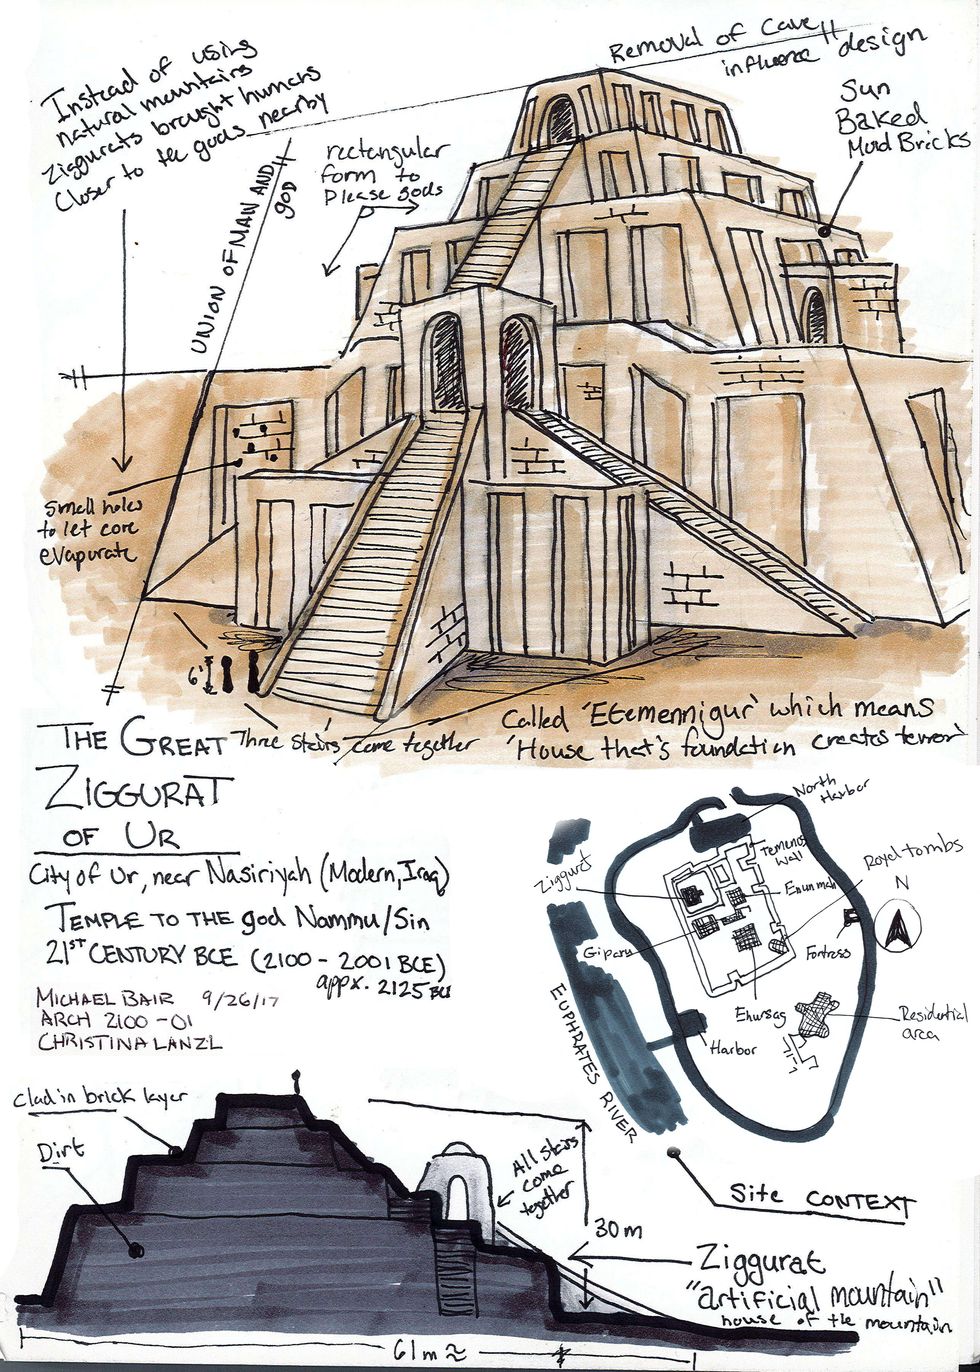 Instead of using
natural mountains
Ziggurats brought humans
Closer to the gods nearby
Removal of Cave
influence
design
Sun
Baked
Mud Bricks
rectangular
form to
Please gods
UNION OF MAN AND
GOD
Small holes
to let core
evaporate
6'
Three stairs come together
Called 'Etemennigur' which means
'House that's foundation creates terror'
THE GREAT
ZIGGURAT
OF UR
City of Ur, near Nasiriyah (Modern, Iraq)
TEMPLE TO THE god Nammu/Sin
21ST CENTURY BCE (2100 - 2001 BCE)
appx. 2125 BCE
MICHAEL BAIR 9/26/17
ARCH 2100-01
CHRISTINA LANZL
North
Harbor
Temenos
Wall
Royal tombs
Ziggurat
Enunmah
N
Giparu
Fortress
Ehursag
Residential
area
Harbor
EUPHRATES RIVER
Site CONTEXT
Clad in brick layer
Dirt
All stairs
come
together
30m
Ziggurat
"artificial mountain"
house of the mountain
61m ≈